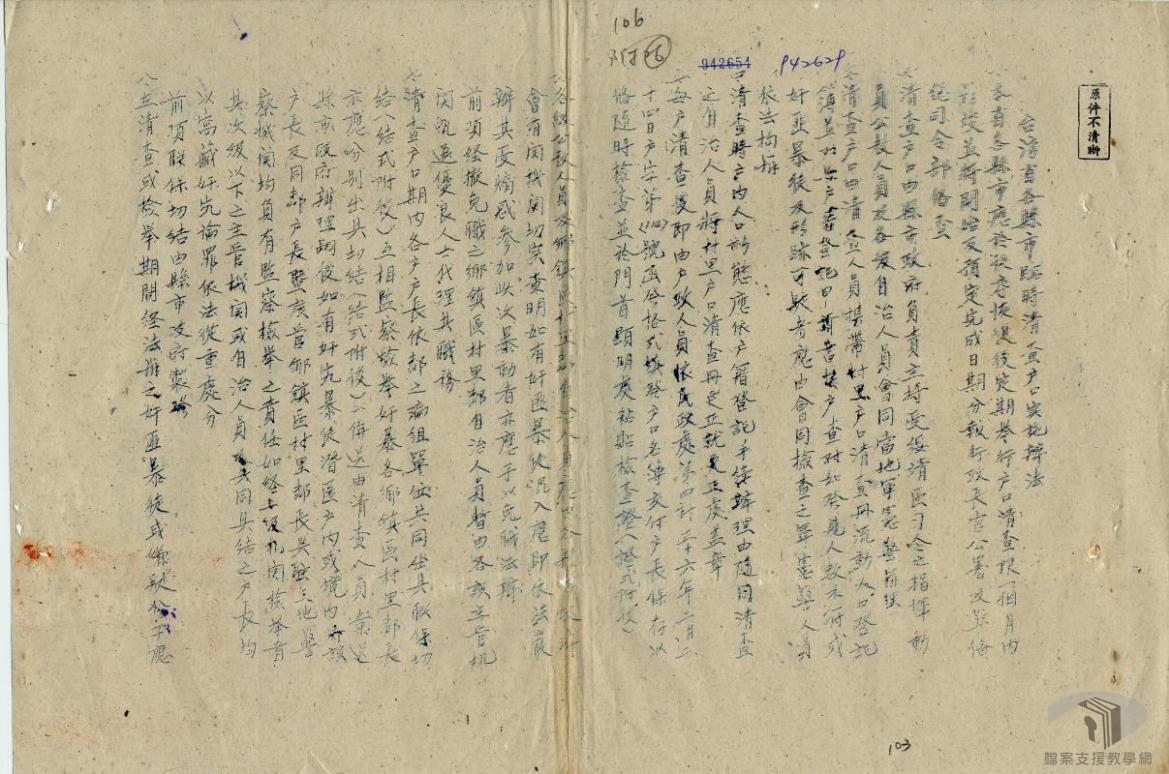 原件不清晰
106
附件(26)
942654
942629
台灣省各縣市臨時清查戶口實施辦法
一、本省各縣市應於秩序恢復後定期舉行戶口清查限一個月內
辦竣並將開始及預定完成日期分報行政長官公署及警備
總司令部備查
二、清查戶口由縣市政府負責主持受綏靖區司令之指揮動
員公教人員及各級自治人員會同當地軍憲警前往
三、清查戶口時清查人員攜帶村里戶口清查冊流動人口登記
簿並村里戶口書登記申請書按戶查對如發見人數不符或
奸匪暴徒及形跡可疑者應由會同檢查之軍憲警人員
依法拘捕
四、清查時戶內人口形態應依戶籍登記手續辦理由隨同清查
之自治人員將村里戶口清查冊更正就更正處蓋章
五、每戶清查後即由戶政人員依民政處第四科三十六年二月二
十四日戶字第 號函發格式填發戶口名簿交付戶長保存以
備隨時檢查並於門首顯明處粘貼檢查證(證式附後)
六、各級公教人員及鄉鎮區村里鄰自治人員
會有關機關切實查明如有奸匪暴徒混入應即依法嚴
辦其受煽惑參加此次暴動者亦應予以免職法辦
前項經撤免職之鄉鎮區村里鄰自治人員暫由各該主管機
關甄選優良人士代理其職務
七、清查戶口期內各戶戶長依鄰之編組單位共同出具聯保切
結(結式附後)互相監察檢舉奸暴各鄉鎮區村里鄰長
亦應分別出具切結(結式附後)一併送由清查人員彙送
縣市政府辦理嗣後如有奸宄暴徒潛匿戶內或境內 該
戶長及同鄰戶長暨該管鄉鎮區村里鄰長與駐在地警
察機關均負有監察檢舉之責任如經上級機關檢舉者
其次級以下之主管機關或自治人員及共同具結之戶長均
以窩藏奸宄論罪依法從重處分
前項聯保切結由縣市政府製發
八、在清查或檢舉期間經法辦之奸匪暴徒或 應
103
檔案支援教學網